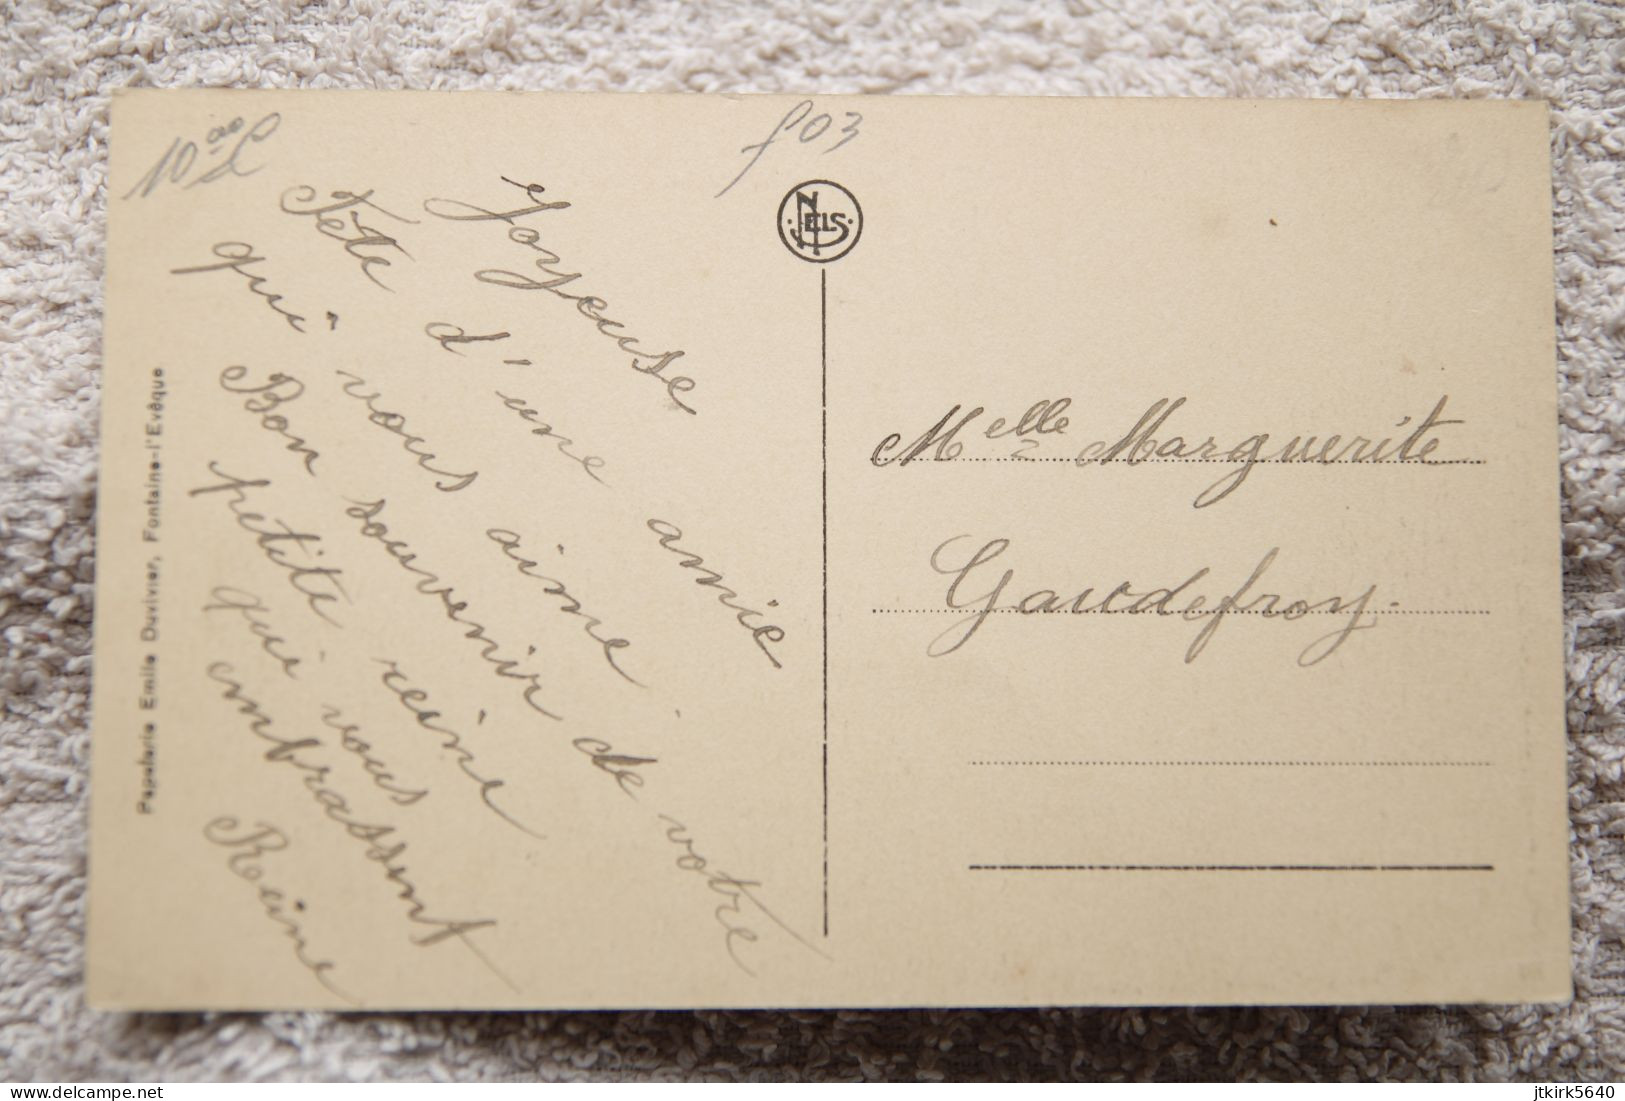 f03
Joyeuse
Fête d'une amie
qui vous aime
Bon souvenir de votre
petite reine
qui vous
embrassent
Reine
Papeterie Emile Duvivier, Fontaine-l'Evêque
NELS
Melle Marguerite
Gaudefroy.
delcampe.net
jtkirk5640